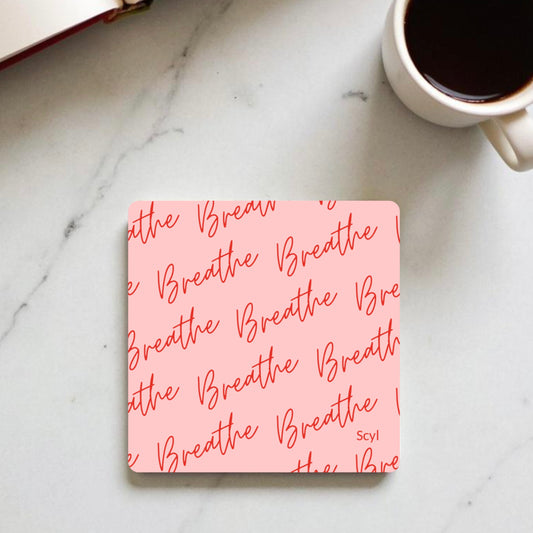 athe Breathe
Breathe Breathe
Breathe Breathe Brea
Breathe Breathe Breathe
athe Breathe Breathe
Breathe Breathe
Scyl